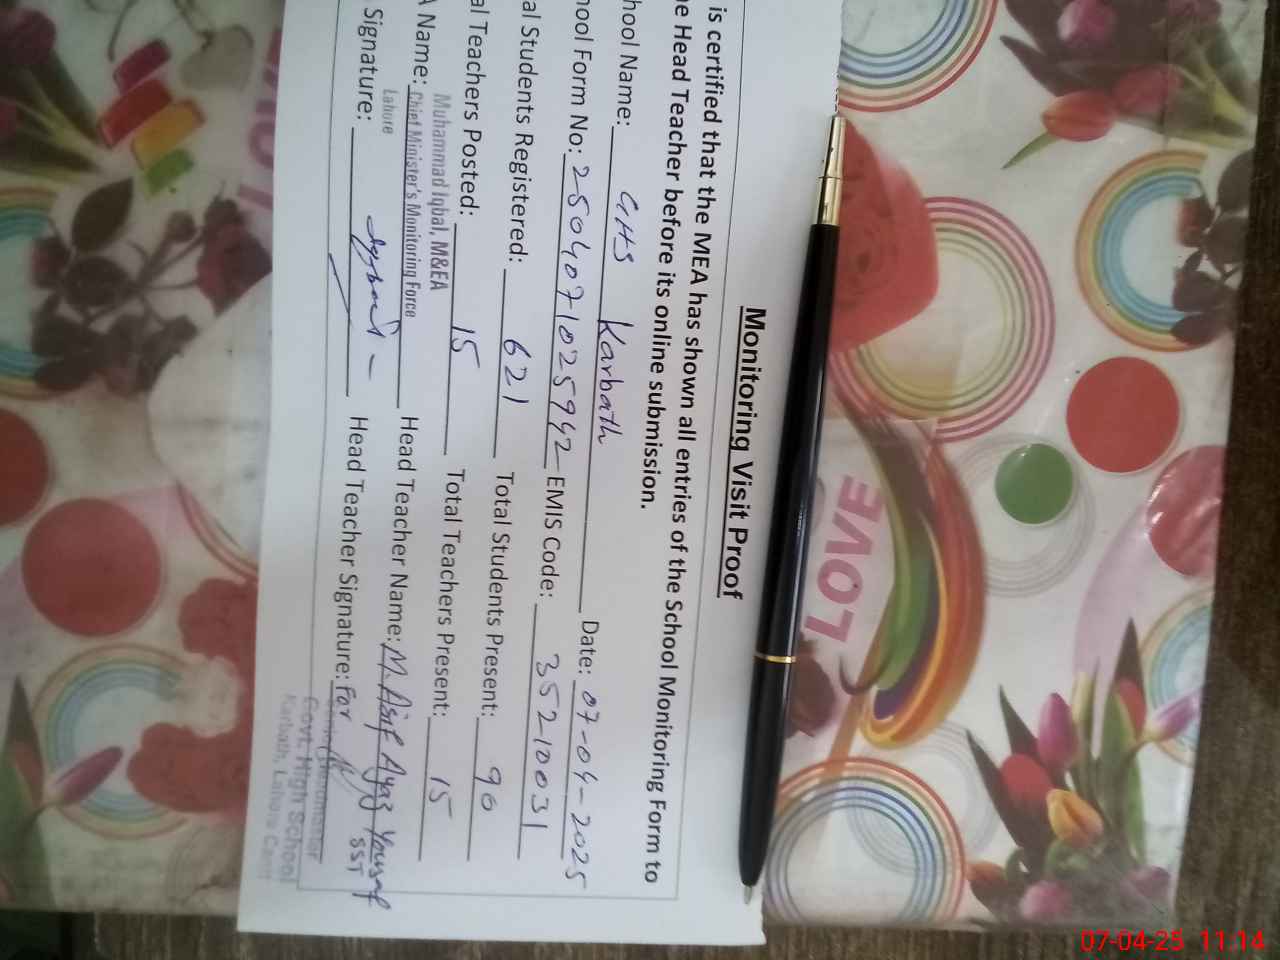 Monitoring Visit Proof
is certified that the MEA has shown all entries of the School Monitoring Form to
e Head Teacher before its online submission.
hool Name: GHS Karbath Date: 07-04-2025
hool Form No: 2504071025942 EMIS Code: 35210031
al Students Registered: 621 Total Students Present: 90
al Teachers Posted: 15 Total Teachers Present: 15
Muhammad Iqbal, M&EA
A Name: Chief Minister's Monitoring Force Head Teacher Name: M. Asif Ayaz Yousaf
Lahore
Signature: Head Teacher Signature: For SST
Govt. High School
Karbath, Lahore Cantt
LOVE
07-04-25 11:14